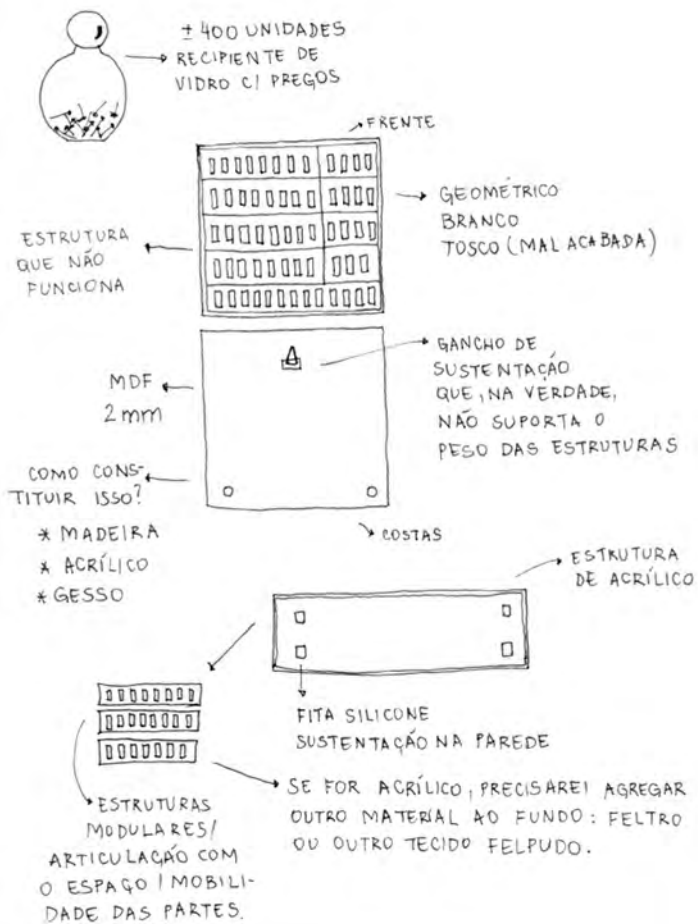 ± 400 UNIDADES
RECIPIENTE DE
VIDRO C/ PREGOS
FRENTE
GEOMÉTRICO
BRANCO
TOSCO (MAL ACABADA)
ESTRUTURA
QUE NÃO
FUNCIONA
GANCHO DE
SUSTENTAÇÃO
QUE, NA VERDADE,
NÃO SUPORTA O
PESO DAS ESTRUTURAS
MDF
2mm
COMO CONS-
TITUIR ISSO?
* MADEIRA
* ACRÍLICO
* GESSO
COSTAS
ESTRUTURA
DE ACRÍLICO
FITA SILICONE
SUSTENTAÇÃO NA PAREDE
SE FOR ACRÍLICO, PRECISAREI AGREGAR
OUTRO MATERIAL AO FUNDO: FELTRO
OU OUTRO TECIDO FELPUDO.
ESTRUTURAS
MODULARES/
ARTICULAÇÃO COM
O ESPAÇO / MOBILI-
DADE DAS PARTES.